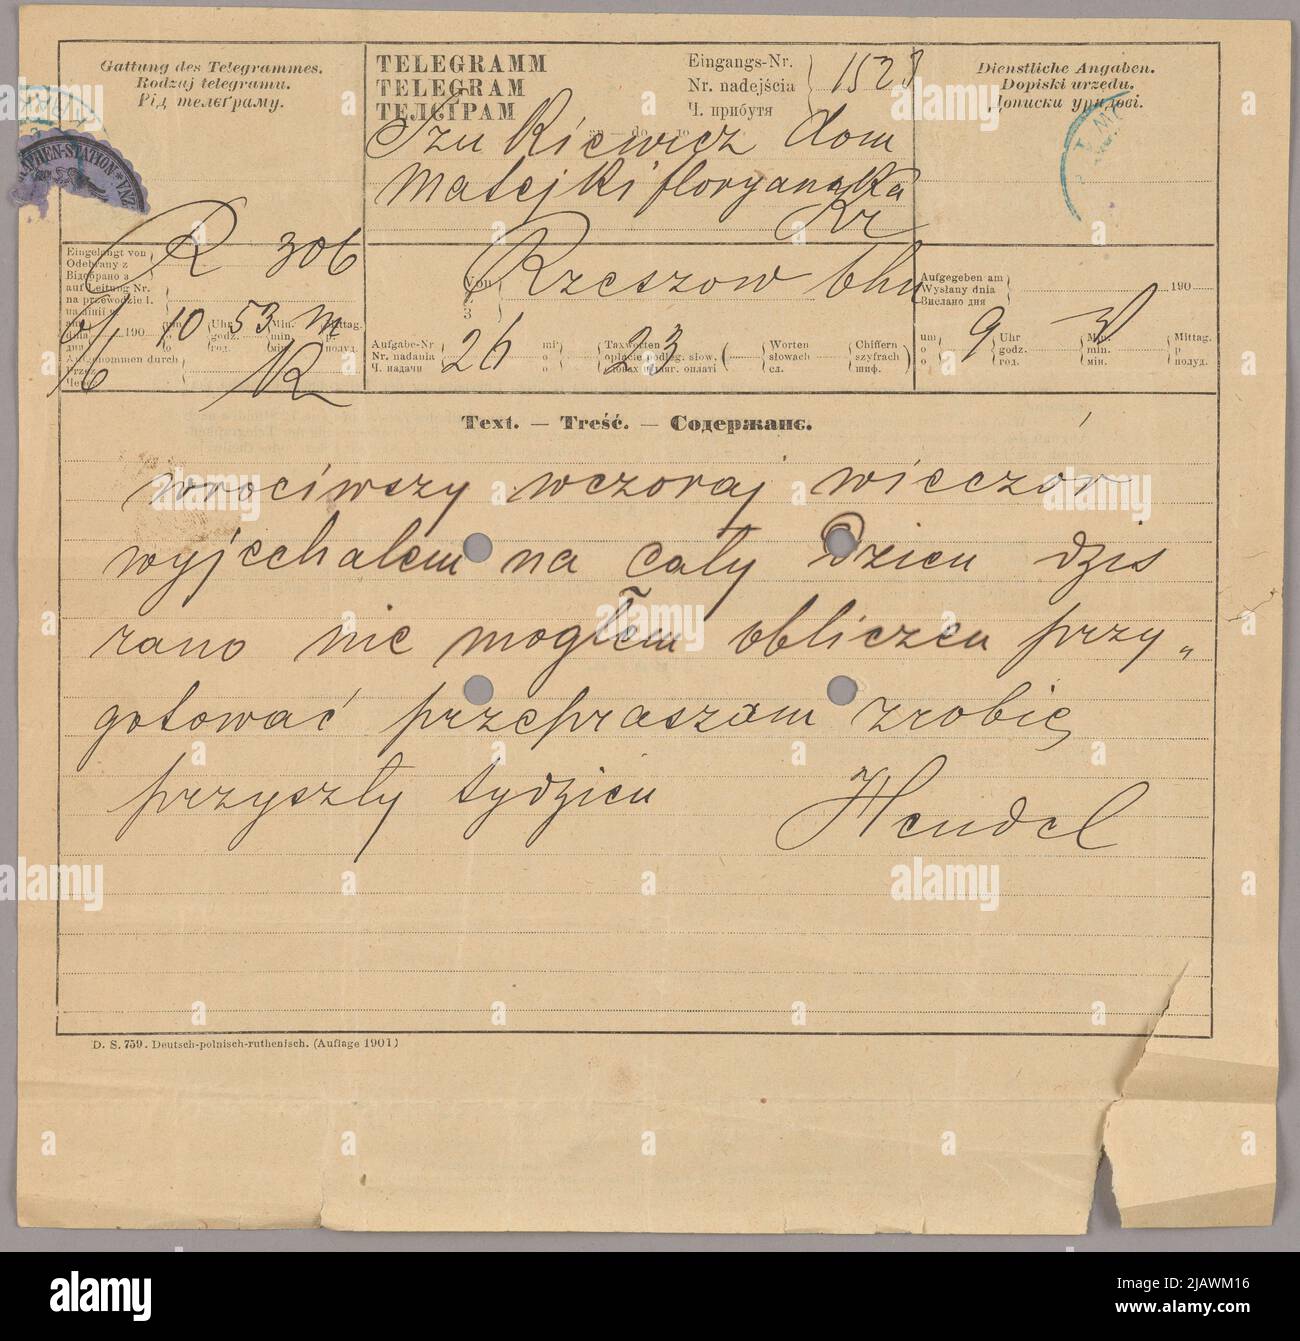 Gattung des Telegrammes.
Rodzaj telegramu.
Рід телєґраму.
TELEGRAMM
TELEGRAM
ТЕЛЄҐРАМ
Eingangs-Nr.
Nr. nadejścia
Ч. прибутя
1528
Dienstliche Angaben.
Dopiski urzędu.
Дописки урядові.
an — do — до
Szukiewicz dom
Matejki floryanska
Kr
PHEN-STATION * VNZ
R 306
Rzeszow bhu
Eingelangt von
Odebrany z
Відобрано з
auf Leitung Nr.
na przewodzie l.
на лінії ч.
am
dnia
дня
190
6/1
um
o
10
Uhr
godz.
год.
53
Min.
min.
мін.
m
Mittag.
p.
полуд.
Aufgenommen durch
Przez
Через
R
Von
Z
З
Aufgabe-Nr
Nr. nadania
Ч. надачи
26
mit
o
o
23
Taxworten
opłacie podleg. słow.
Worten
słowach
сл.
Chiffern
szyfrach
шиф.
Aufgegeben am
Wysłany dnia
Вислано дня
190
um
o
o
9
Uhr
godz.
год.
Min.
min.
мін.
Mittag.
p
полуд.
Text. — Treść. — Содержанє.
wrociwszy wczoraj wieczór
wyjechalem na cały dzien dzis
rano nie mogłem obliczen przy„
gotować przepraszam zrobię
przyszły tydzien Hendel
D. S. 759. Deutsch-polnisch-ruthenisch. (Auflage 1901)
alamy
Image ID: 2JAWM16
www.alamy.com